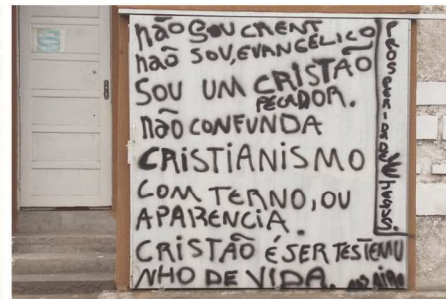 não SOU CRENT
não SOU, EVANGÉLICO
SOU UM CRISTÃO
PECADOR.
não CONFUNDA
CRISTIANISMO
COM TERNO, OU
APARENCIA.
CRISTÃO É SER TESTEMU
NHO DE VIDA.